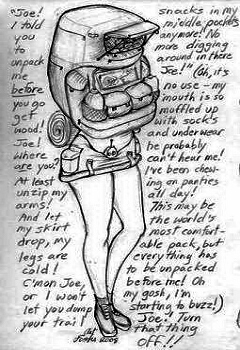 "Joe!
I told
you
to
unpack
me
before
you go
get
wood!
Joe!
Where
are you?
At least
unzip my
arms!
And let
my skirt
drop, my
legs are
cold!
C'mon Joe,
or I won't
let you dump
your trail
snacks in my
middle pocket
anymore! No
more digging
around in there
Joe!" (Oh, it's
no use - my
mouth is so
muffled up
with socks
and underwear
he probably
can't hear me!
I've been chew-
ing on panties
all day!
This may be
the world's
most comfort-
able pack, but
everything has
to be unpacked
before me! Oh
my gosh, I'm
starting to buzz!)
Joe!! Turn
that thing
OFF!!
2008